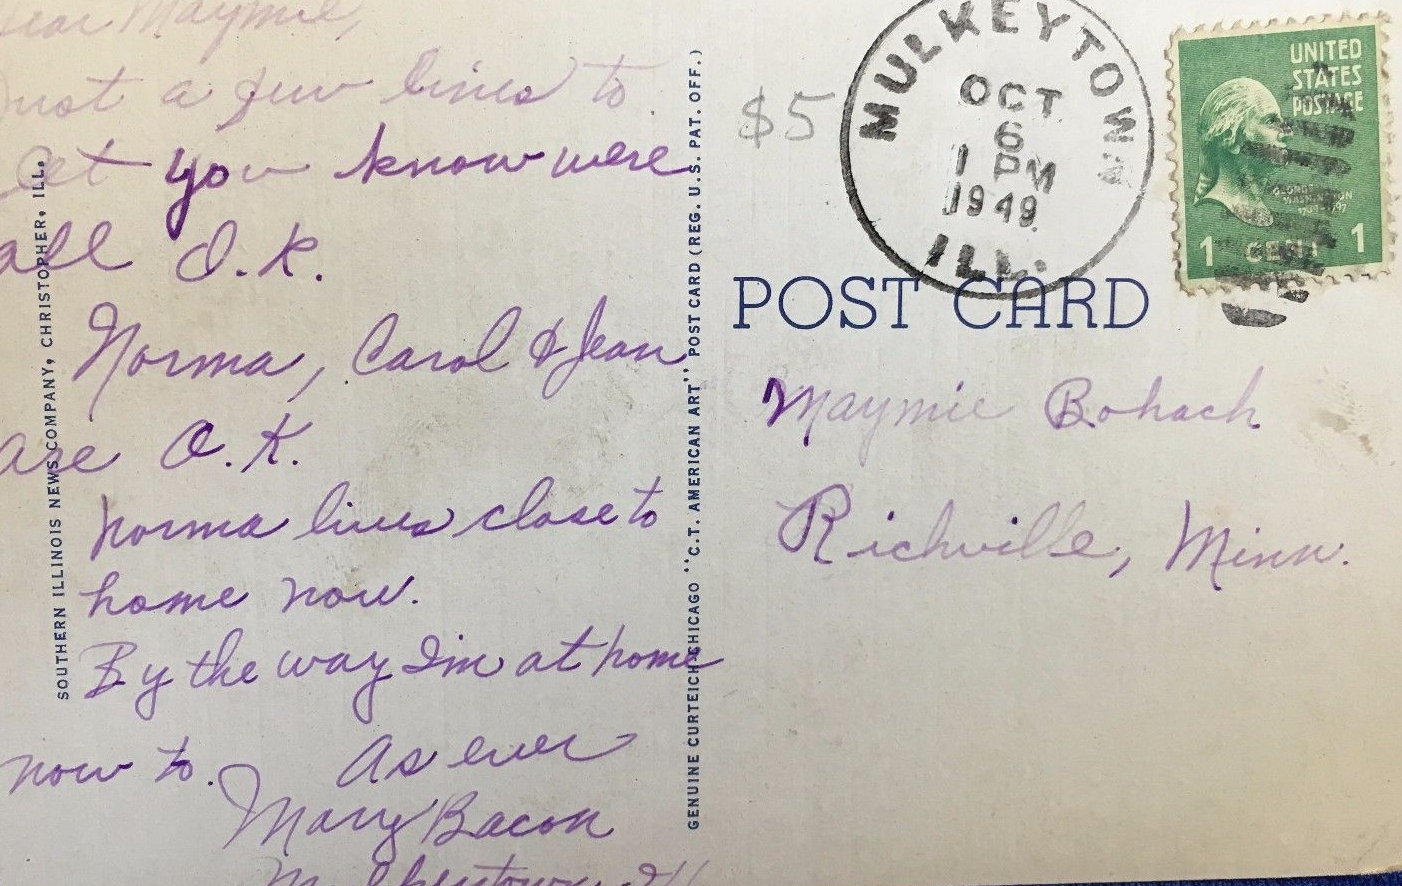 Dear Maymie,
Just a few lines to
let you know were
all O.K.
Norma, Carol & Jean
are O.K.
Norma lives close to
home now.
By the way I'm at home
now to.
As ever
Mary Bacon
SOUTHERN ILLINOIS NEWS COMPANY, CHRISTOPHER, ILL.
GENUINE CURTEICH-CHICAGO "C.T. AMERICAN ART" POST CARD (REG. U.S. PAT. OFF.)
$5
MULKEYTOWN
OCT
6
1 PM
1949
ILL.
UNITED
STATES
POSTAGE
1 CENT 1
POST CARD
Maymie Bohach
Richville, Minn.